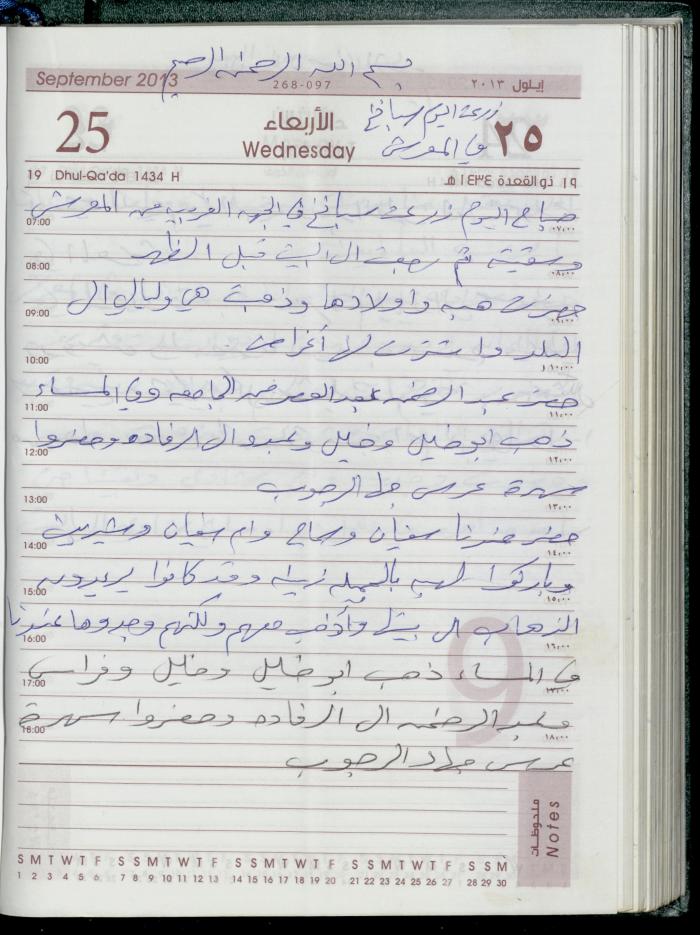 بسم الله الرحمن الرحيم
September 2013 268-097 إيلول ٢٠١٣
زرعت اليوم سبانخ
25 الأربعاء ٢٥
Wednesday في المعرش
19 Dhul-Qa'da 1434 H ١٩ ذو القعدة ١٤٣٤ هـ
صباح اليوم زرعت سبانخ في الجهه الغربيه من المعرش
07:00 ٠٧,٠٠
وسقيته ثم رجعت ال البيت قبل الظهر
08:00 ٠٨,٠٠
حضرت هبه واولادها وذهبت هي وليال ال
09:00 ٠٩,٠٠
البلد واشترت لها أغراض
10:00 ١٠,٠٠
حضر عبد الرحمن بعد العصر من الجامعه وفي المساء
11:00 ١١,٠٠
ذهب ابو خليل وخليل وعبد ال الرفاده وحضروا
12:00 ١٢,٠٠
سهرة عرس الرجوب
13:00 ١٣,٠٠
حضر عندنا سفيان وسماح وام سفيان وشيرين
14:00 ١٤,٠٠
وباركوا لهبه وقد كانوا يريدون
15:00 ١٥,٠٠
الذهاب ال بيتها وأذهب معهم ولكنهم وجدوها عندنا
16:00 ١٦,٠٠
في المساء ذهب ابو خليل وخليل وفراس
17:00 ١٧,٠٠
وعبد الرحمن ال الرفاده وحضروا سهرة
18:00 ١٨,٠٠
عرس جهاد الرجوب
9
ملحوظات
Notes
S M T W T F S S M T W T F S S M T W T F S S M T W T F S S M
1 2 3 4 5 6 7 8 9 10 11 12 13 14 15 16 17 18 19 20 21 22 23 24 25 26 27 28 29 30